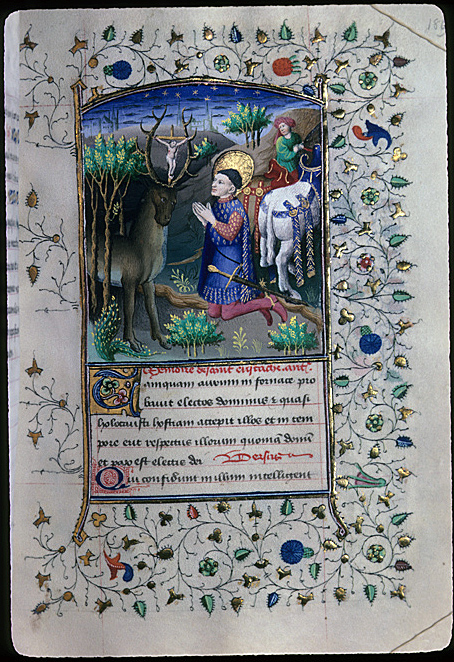 Memoire de saint eustache. ant.
Tanquam aurum in fornace pro
bauit electos dominus ⁊ quasi
holocausti hostiam accepit illos et in tem
pore erit respectus illorum quoniā donū
et pax est electis dei Versus
Qui confidunt in illum intelligent